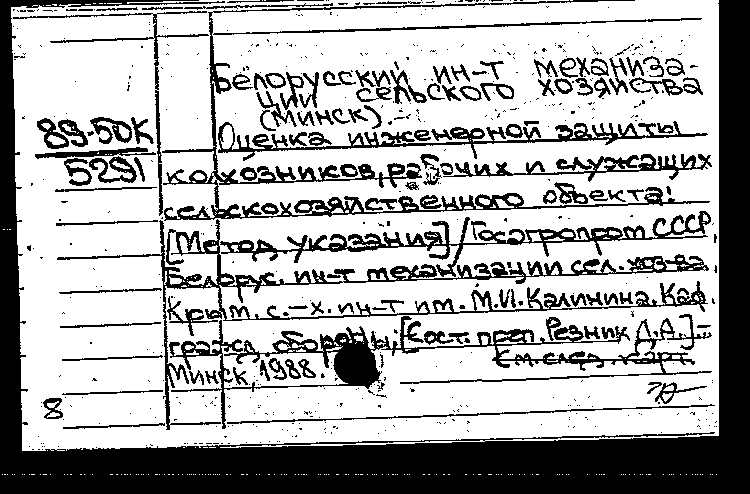 Белорусский ин-т механиза-
ции сельского хозяйства
(Минск).
89-50К
5291
Оценка инженерной защиты
колхозников, рабочих и служащих
сельскохозяйственного объекта:
[Метод. указания] / Госагропром СССР,
Белорус. ин-т механизации сел. хоз-ва,
Крым. с.-х. ин-т им. М.И. Калинина. Каф.
гражд. обороны; [Сост. преп. Резник Д.А.] –
См. след. карт.
Минск, 1988.
8